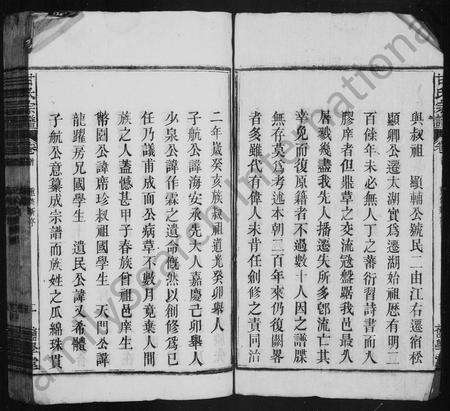 與叔祖 顯輔公號民二由江右遷宿松
顯卿公遷太湖實爲遷湖始祖歷有明二
百餘年未必無人丁之蕃衍習詩書而入
膠庠者但鼎草之交流寇盤踞我邑最久
屠戮幾盡我先人播遷失所多郤流亡其
幸免而復原籍者不過數十人因之譜牒
無存莫爲考述本朝二百年來仍復闕畧
者多雖代有偉人未肯任創修之責同治
二年歲癸亥族叔祖道光癸卯舉人
子航公諱海安承先大人嘉慶己卯舉人
少泉公諱作霖之遺命慨然以創修爲已
任乃議甫成而公病草不數月竟棄人間
族之人蓋憾甚甲子春族祖邑庠生
幣園公諱席珍叔祖國學生 天門公諱
龍躍房兄國學生 遺民公諱 又希體
子航公意纂成宗譜而族姓之瓜綿珠貫
FamilySearch International